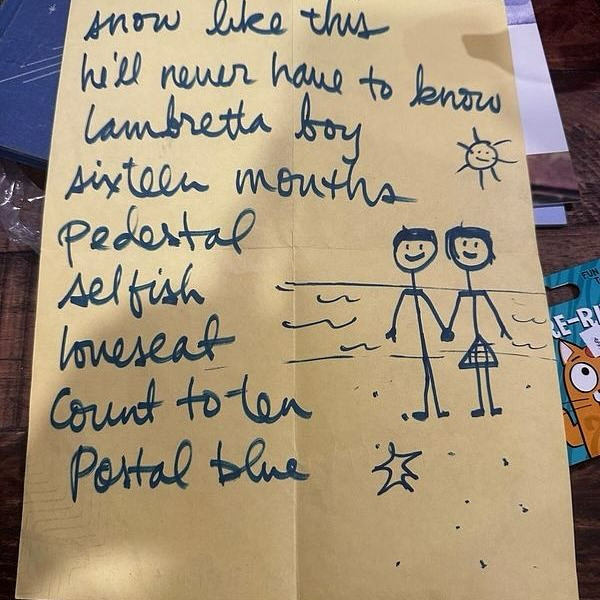 snow like this
he'll never have to know
lambretta boy
sixteen months
pedestal
selfish
loveseat
Count to ten
Postal blue
FUN